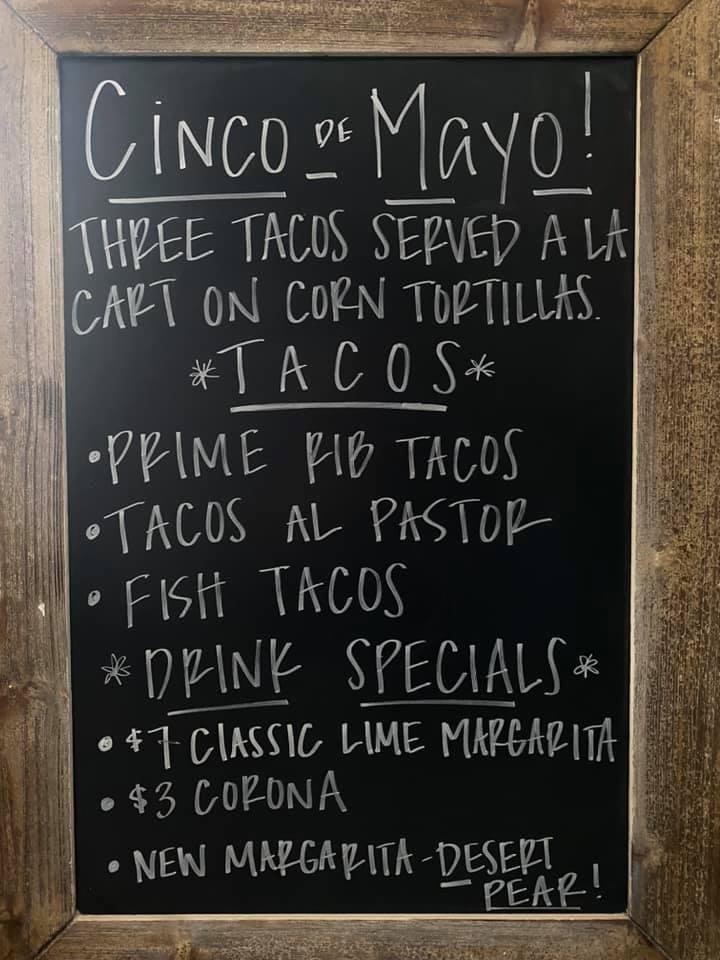 CINCO DE MAYO!
THREE TACOS SERVED A LA
CART ON CORN TORTILLAS.
*TACOS*
• PRIME RIB TACOS
• TACOS AL PASTOR
• FISH TACOS
*DRINK SPECIALS*
• $7 CLASSIC LIME MARGARITA
• $3 CORONA
• NEW MARGARITA - DESERT
PEAR!